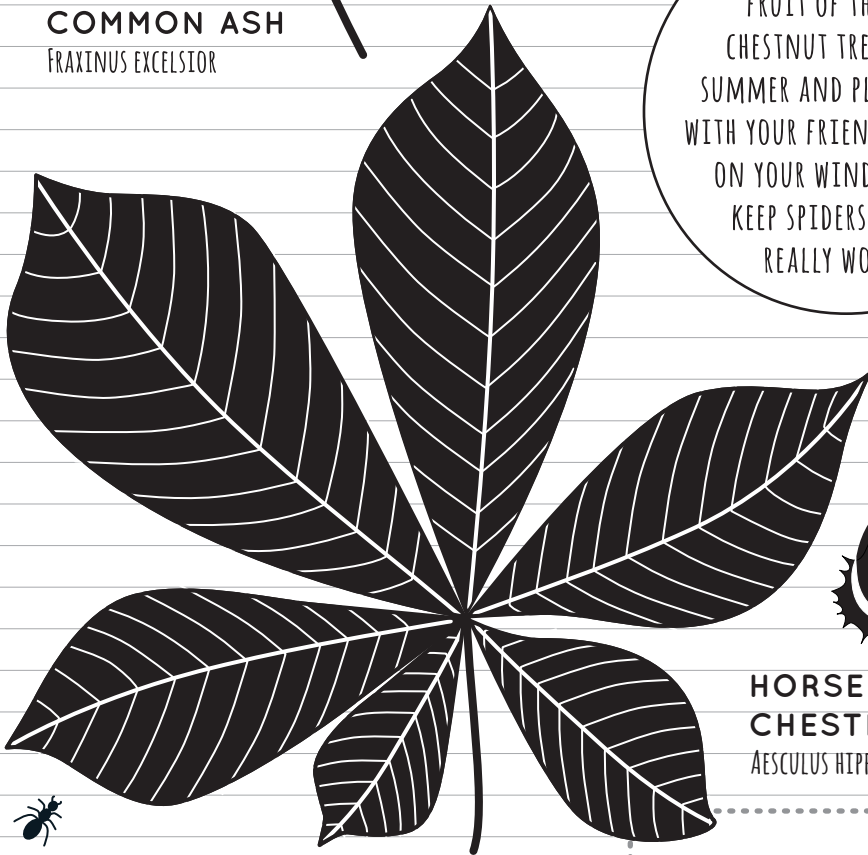 COMMON ASH
FRAXINUS EXCELSIOR
FRUIT OF TH
CHESTNUT TRE
SUMMER AND PL
WITH YOUR FRIEN
ON YOUR WIND
KEEP SPIDERS
REALLY WO
HORSE
CHEST
AESCULUS HIPP